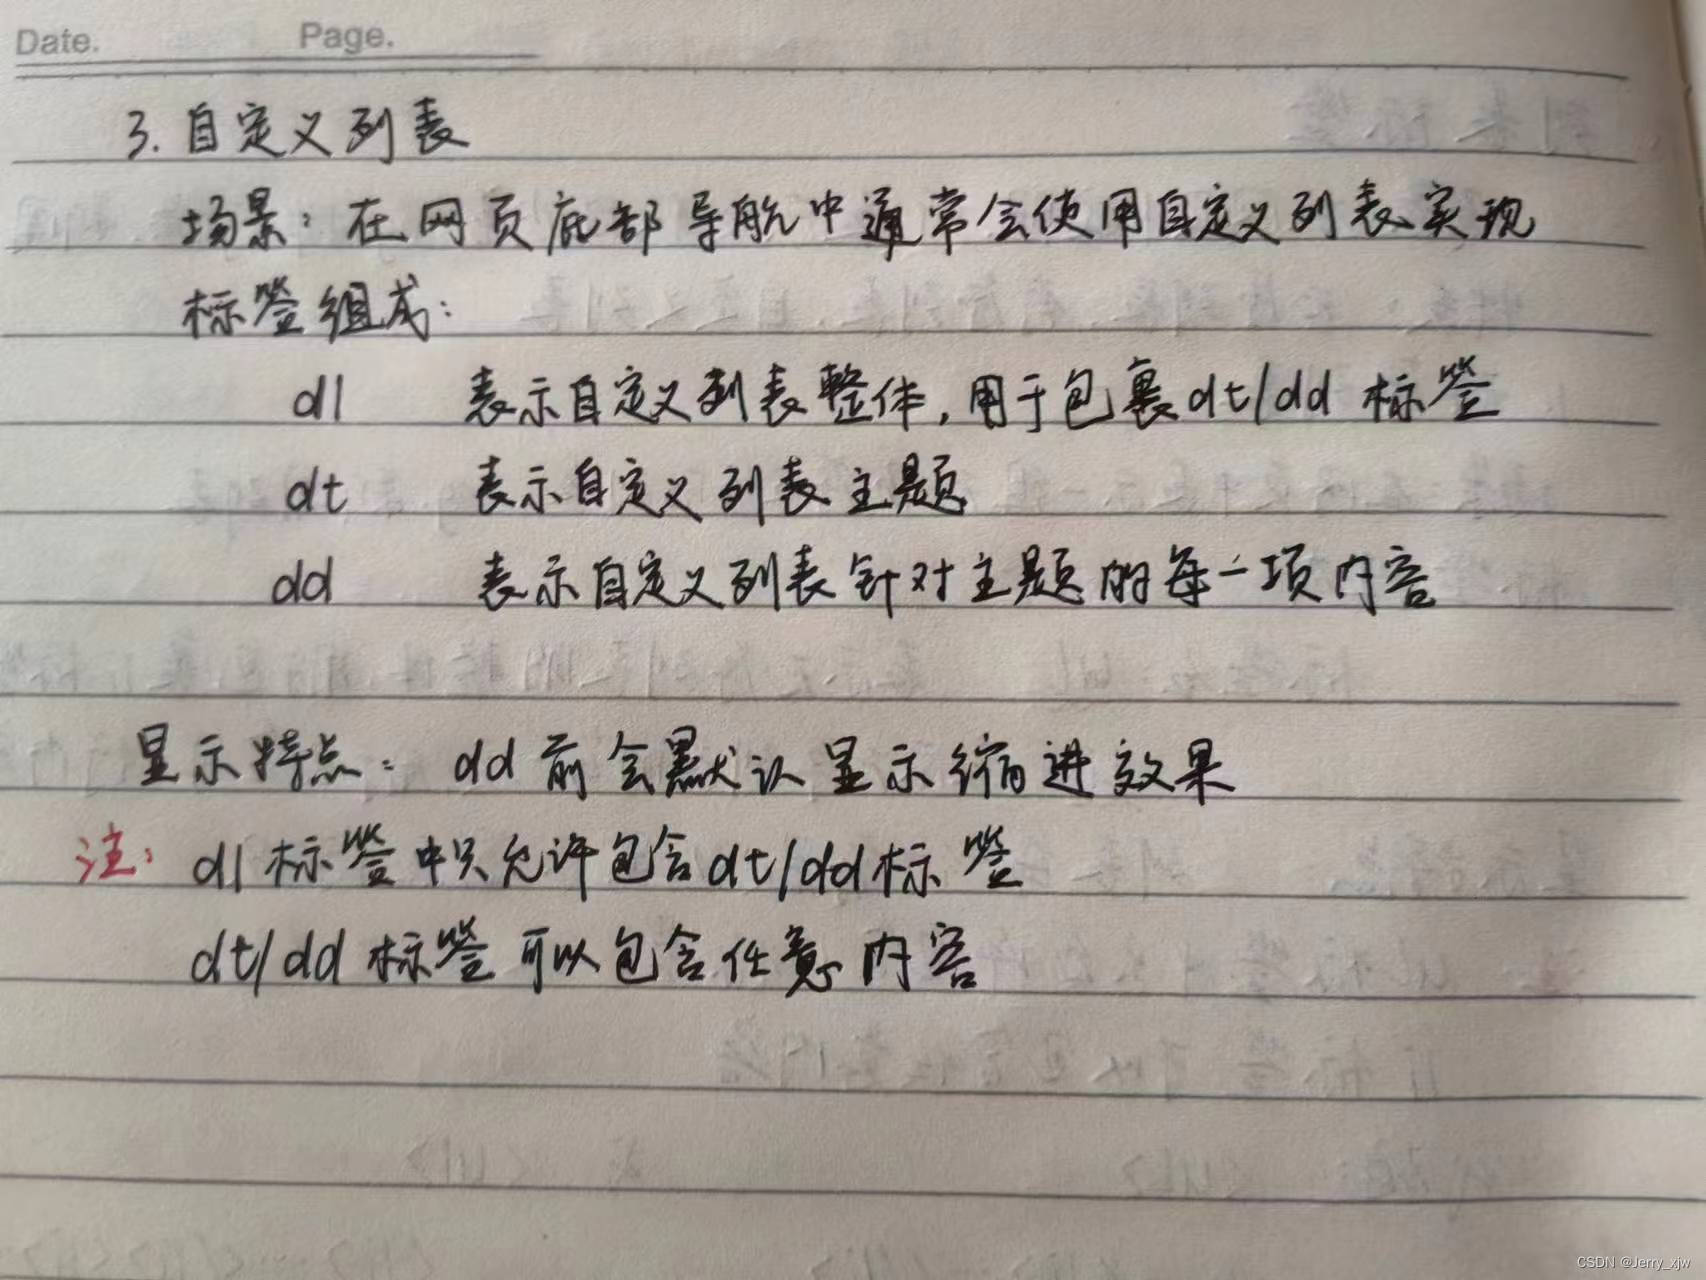 Date. Page.
3. 自定义列表
场景：在网页底部导航中通常会使用自定义列表实现
标签组成：
dl 表示自定义列表整体，用于包裹dt/dd 标签
dt 表示自定义列表主题
dd 表示自定义列表针对主题的每一项内容
显示特点： dd 前会默认显示缩进效果
注： dl 标签中只允许包含dt/dd标签
dt/dd 标签可以包含任意内容
CSDN @Jerry_xjw